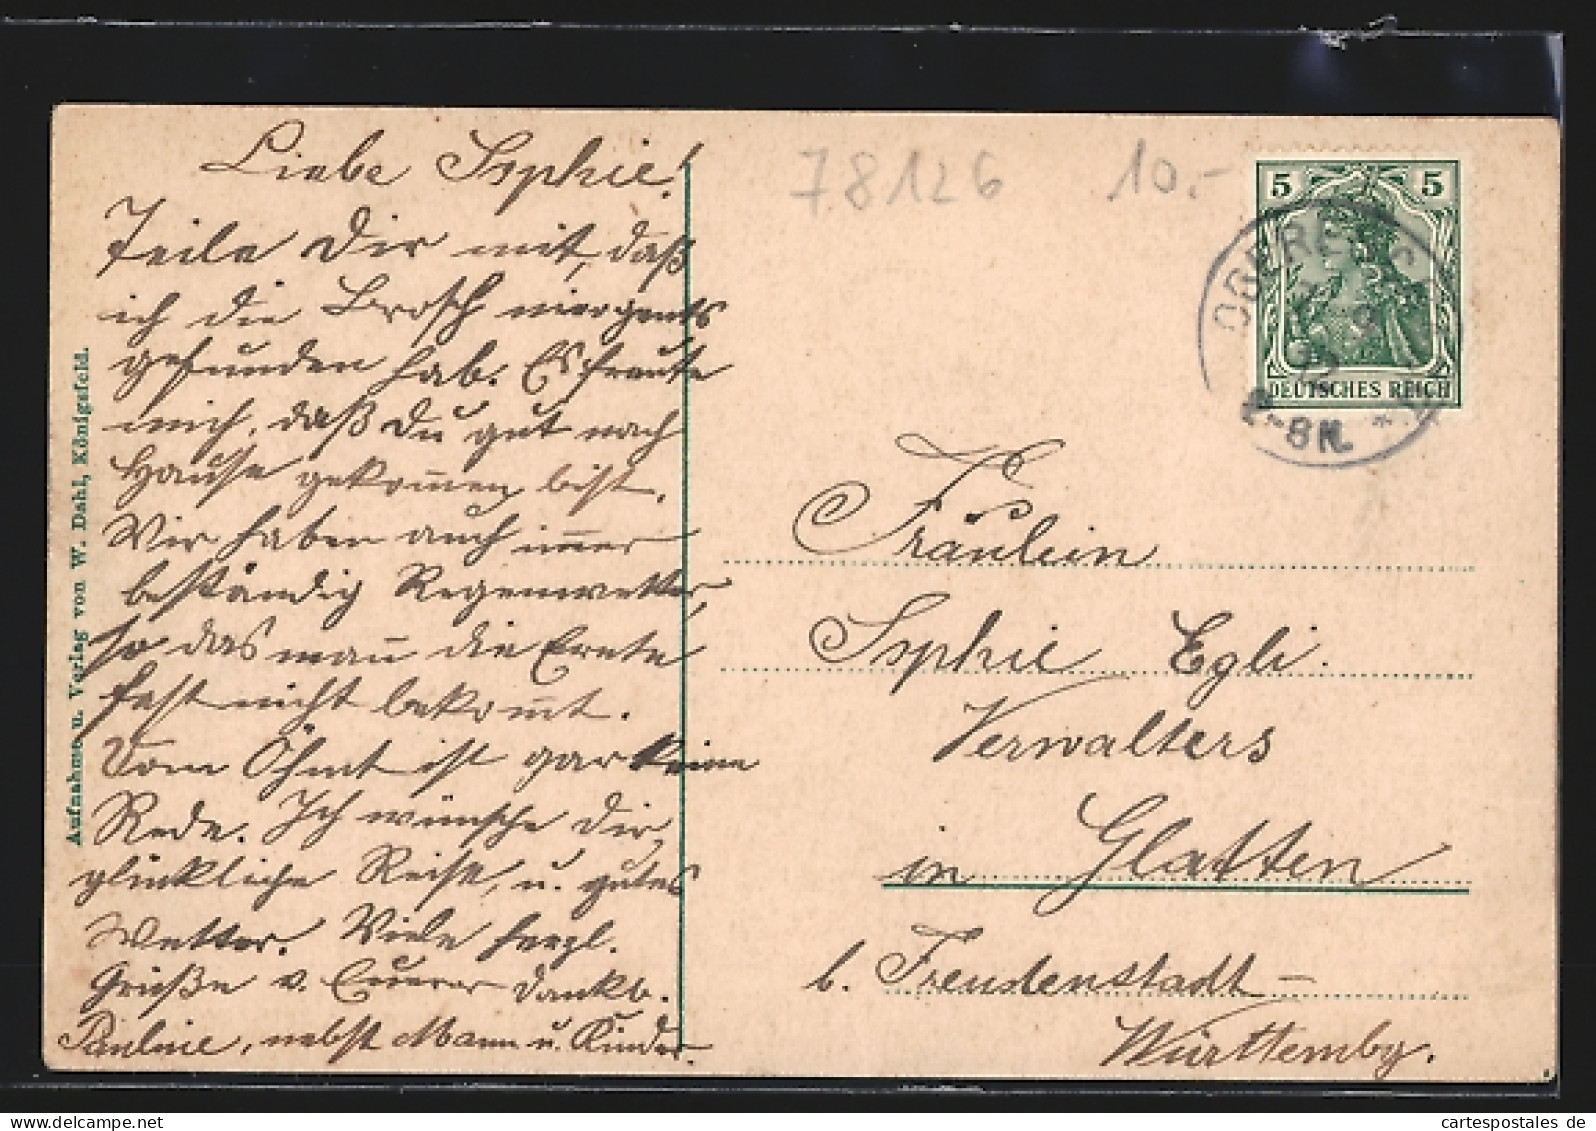 Liebe Sophie!
Teile Dir mit, daß
ich die Brosch niergents
gefunden hab. Es freute
mich, daß Du gut nach
Hause gekom̅en bist.
Wir haben auch im̅er
beständig Regenwetter,
so das man̅ die Ernte
fast nicht bekom̅t.
Vom Öhmt ist gar keine
Rede. Ich wünsche Dir
glückliche Reise, u. gutes
Wetter. Viele herzl.
Grüße v. Euerer dankb.
Pauline, nebst Mann u. Kinder.
Aufnahme u. Verlag von W. Dahl, Königsfeld.
78126 10.-
5 5
DEUTSCHES REICH
-8N. *
Fräulein
Sophie Egli.
Verwalters
in Glatten
b. Freudenstadt -
Württembg.
cartespostales de